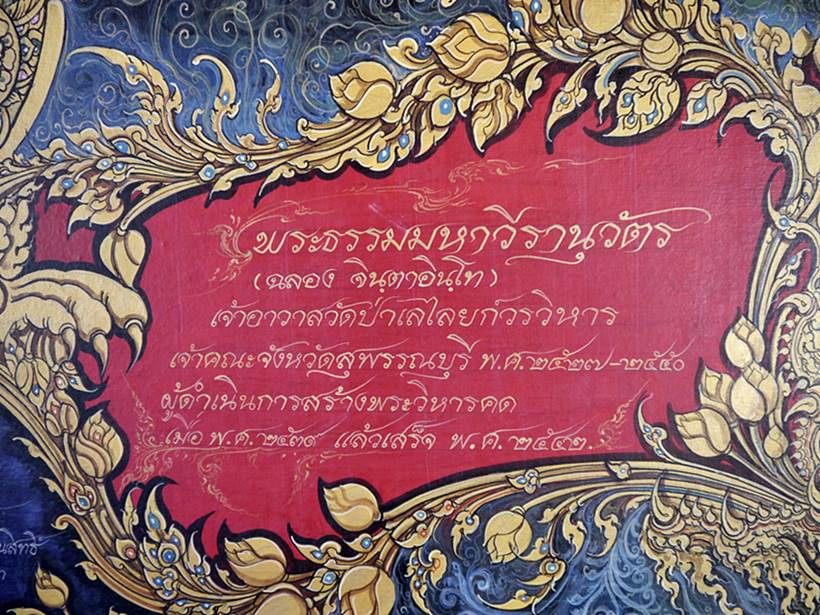 พระธรรมมหาวีรานุวัตร
(ฉลอง จินฺตาอินฺโท)
เจ้าอาวาสวัดป่าเลไลยก์วรวิหาร
เจ้าคณะจังหวัดสุพรรณบุรี พ.ศ.๒๕๒๗-๒๕๕๐
ผู้ดำเนินการสร้างพระวิหารคด
เมื่อ พ.ศ.๒๕๓๑ แล้วเสร็จ พ.ศ.๒๕๔๒.